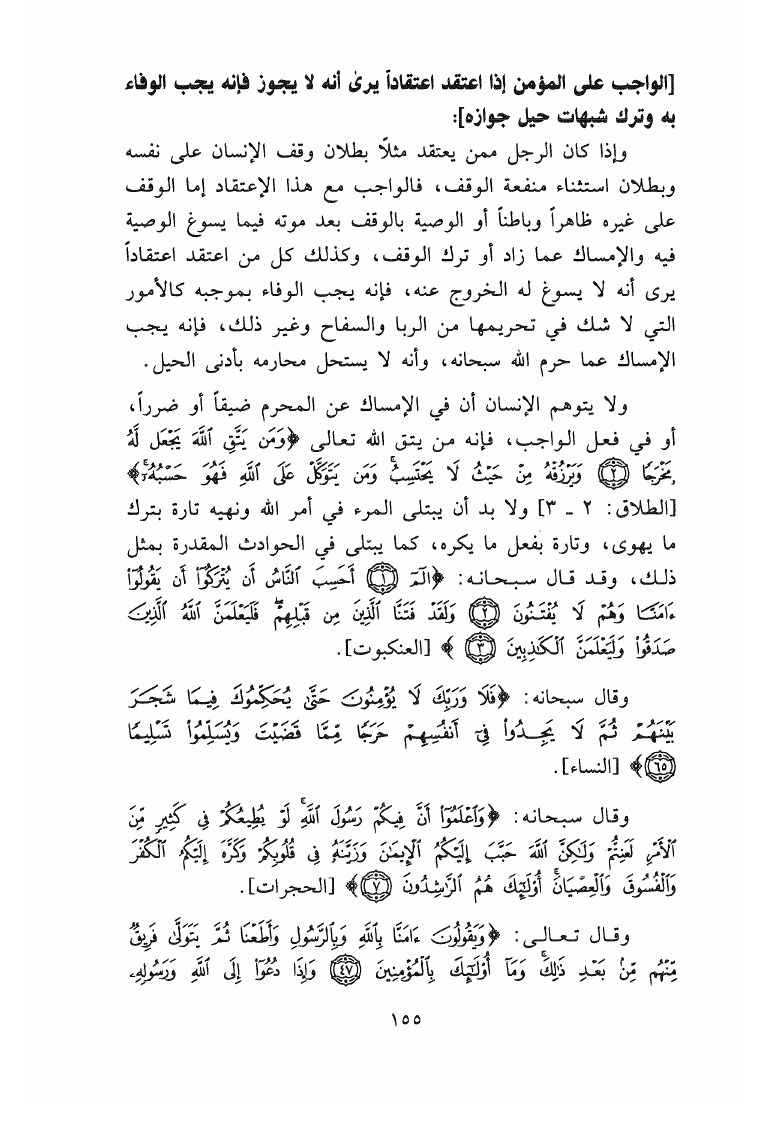 [الواجب على المؤمن إذا اعتقد اعتقاداً يرىٰ أنه لا يجوز فإنه يجب الوفاء
به وترك شبهات حيل جوازه]:
وإذا كان الرجل ممن يعتقد مثلاً بطلان وقف الإنسان على نفسه
وبطلان استثناء منفعة الوقف، فالواجب مع هذا الإعتقاد إما الوقف
على غيره ظاهراً وباطناً أو الوصية بالوقف بعد موته فيما يسوغ الوصية
فيه والإمساك عما زاد أو ترك الوقف، وكذلك كل من اعتقد اعتقاداً
يرى أنه لا يسوغ له الخروج عنه، فإنه يجب الوفاء بموجبه كالأمور
التي لا شك في تحريمها من الربا والسفاح وغير ذلك، فإنه يجب
الإمساك عما حرم الله سبحانه، وأنه لا يستحل محارمه بأدنى الحيل.
ولا يتوهم الإنسان أن في الإمساك عن المحرم ضيقاً أو ضرراً،
أو في فعل الواجب، فإنه من يتق الله تعالى ﴿وَمَن يَتَّقِ ٱللَّهَ يَجْعَل لَّهُۥ
مَخْرَجًا ٢ وَيَرْزُقْهُ مِنْ حَيْثُ لَا يَحْتَسِبُ ۚ وَمَن يَتَوَكَّلْ عَلَى ٱللَّهِ فَهُوَ حَسْبُهُۥٓ ۚ﴾
[الطلاق: ٢ ـ ٣] ولا بد أن يبتلى المرء في أمر الله ونهيه تارة بترك
ما يهوى، وتارة بفعل ما يكره، كما يبتلى في الحوادث المقدرة بمثل
ذلك، وقد قال سبحانه: ﴿الٓمٓ ١ أَحَسِبَ ٱلنَّاسُ أَن يُتْرَكُوٓا۟ أَن يَقُولُوٓا۟
ءَامَنَّا وَهُمْ لَا يُفْتَنُونَ ٢ وَلَقَدْ فَتَنَّا ٱلَّذِينَ مِن قَبْلِهِمْ ۖ فَلَيَعْلَمَنَّ ٱللَّهُ ٱلَّذِينَ
صَدَقُوا۟ وَلَيَعْلَمَنَّ ٱلْكَٰذِبِينَ ٣ ﴾ [العنكبوت].
وقال سبحانه: ﴿فَلَا وَرَبِّكَ لَا يُؤْمِنُونَ حَتَّىٰ يُحَكِّمُوكَ فِيمَا شَجَرَ
بَيْنَهُمْ ثُمَّ لَا يَجِدُوا۟ فِىٓ أَنفُسِهِمْ حَرَجًا مِّمَّا قَضَيْتَ وَيُسَلِّمُوا۟ تَسْلِيمًا
٦٥﴾ [النساء].
وقال سبحانه: ﴿وَٱعْلَمُوٓا۟ أَنَّ فِيكُمْ رَسُولَ ٱللَّهِ ۚ لَوْ يُطِيعُكُمْ فِى كَثِيرٍ مِّنَ
ٱلْأَمْرِ لَعَنِتُّمْ وَلَٰكِنَّ ٱللَّهَ حَبَّبَ إِلَيْكُمُ ٱلْإِيمَٰنَ وَزَيَّنَهُۥ فِى قُلُوبِكُمْ وَكَرَّهَ إِلَيْكُمُ ٱلْكُفْرَ
وَٱلْفُسُوقَ وَٱلْعِصْيَانَ ۚ أُو۟لَٰٓئِكَ هُمُ ٱلرَّٰشِدُونَ ٧﴾ [الحجرات].
وقال تعالى: ﴿وَيَقُولُونَ ءَامَنَّا بِٱللَّهِ وَبِٱلرَّسُولِ وَأَطَعْنَا ثُمَّ يَتَوَلَّىٰ فَرِيقٌ
مِّنْهُم مِّنۢ بَعْدِ ذَٰلِكَ ۚ وَمَآ أُو۟لَٰٓئِكَ بِٱلْمُؤْمِنِينَ ٤٧ وَإِذَا دُعُوٓا۟ إِلَى ٱللَّهِ وَرَسُولِهِۦ
١٥٥